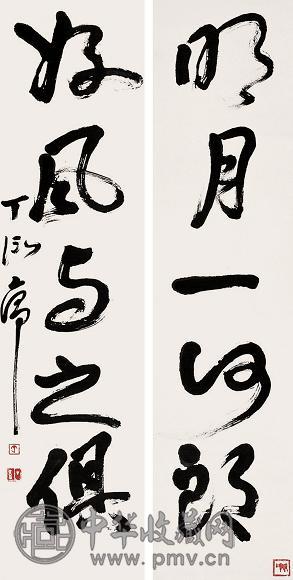 明月一何朗
好風与之俱
丁衍庸
中华收藏网
www.pmv.cn